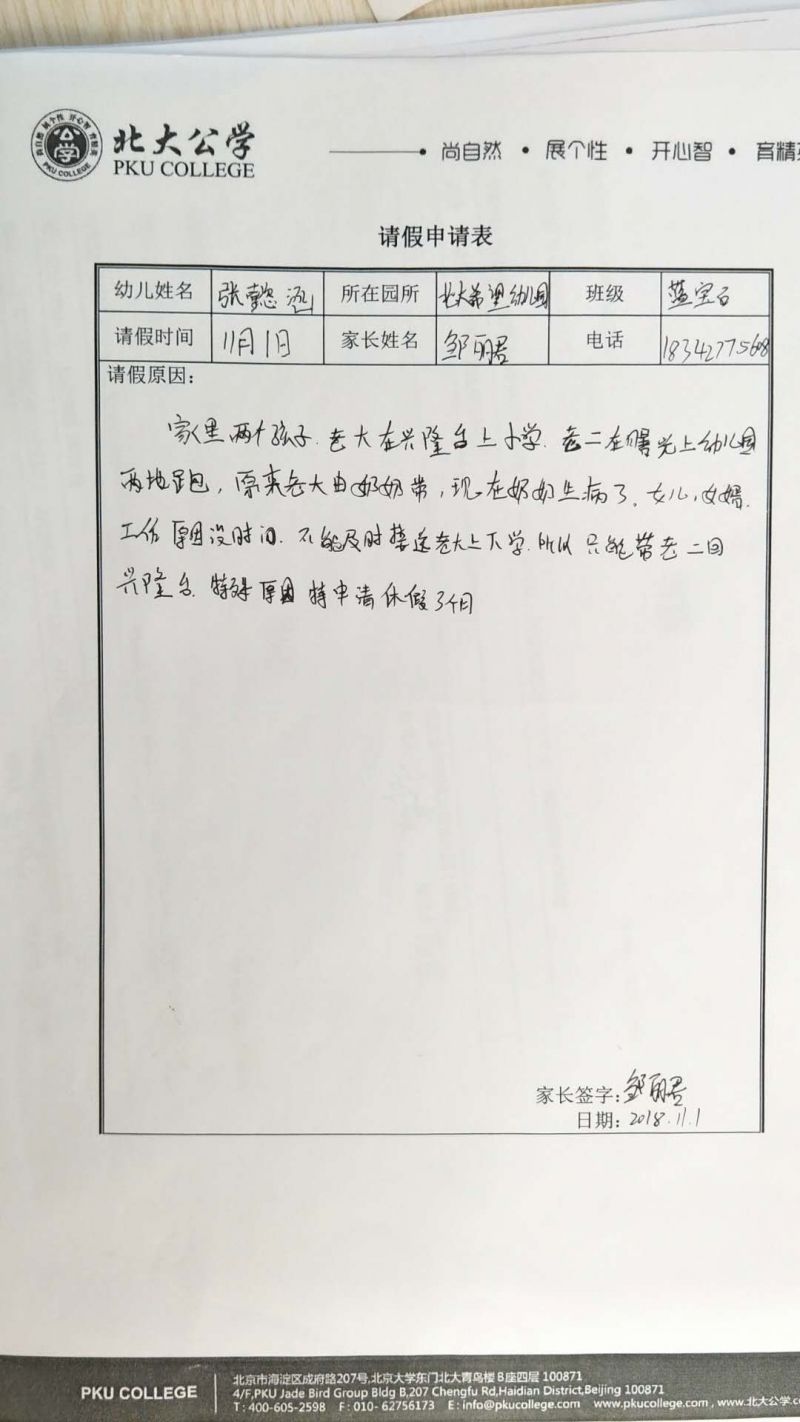 北大公学
PKU COLLEGE
尚自然 • 展个性 • 开心智 • 育精
请假申请表
幼儿姓名 张懿涵 所在园所 北大希望幼儿园 班级 蓝宝石
请假时间 11月1日 家长姓名 邹丽君 电话 18342775608
请假原因：
家里两个孩子.老大在兴隆台上小学.老二在曙光上幼儿园
两地跑，原来老大由奶奶带，现在奶奶生病了.女儿,女婿.
工作原因没时间.不能及时接送老大上下学.所以只能带老二回
兴隆台.特殊原因特申请休假3个月
家长签字：邹丽君
日期：2018.11.1
PKU COLLEGE
北京市海淀区成府路207号,北京大学东门北大青鸟楼B座四层 100871
4/F,PKU Jade Bird Group Bldg B,207 Chengfu Rd,Haidian District,Beijing 100871
T：400-605-2598 F：010- 62756173 E：info@pkucollege.com www.pkucollege.com , www.北大公学.c